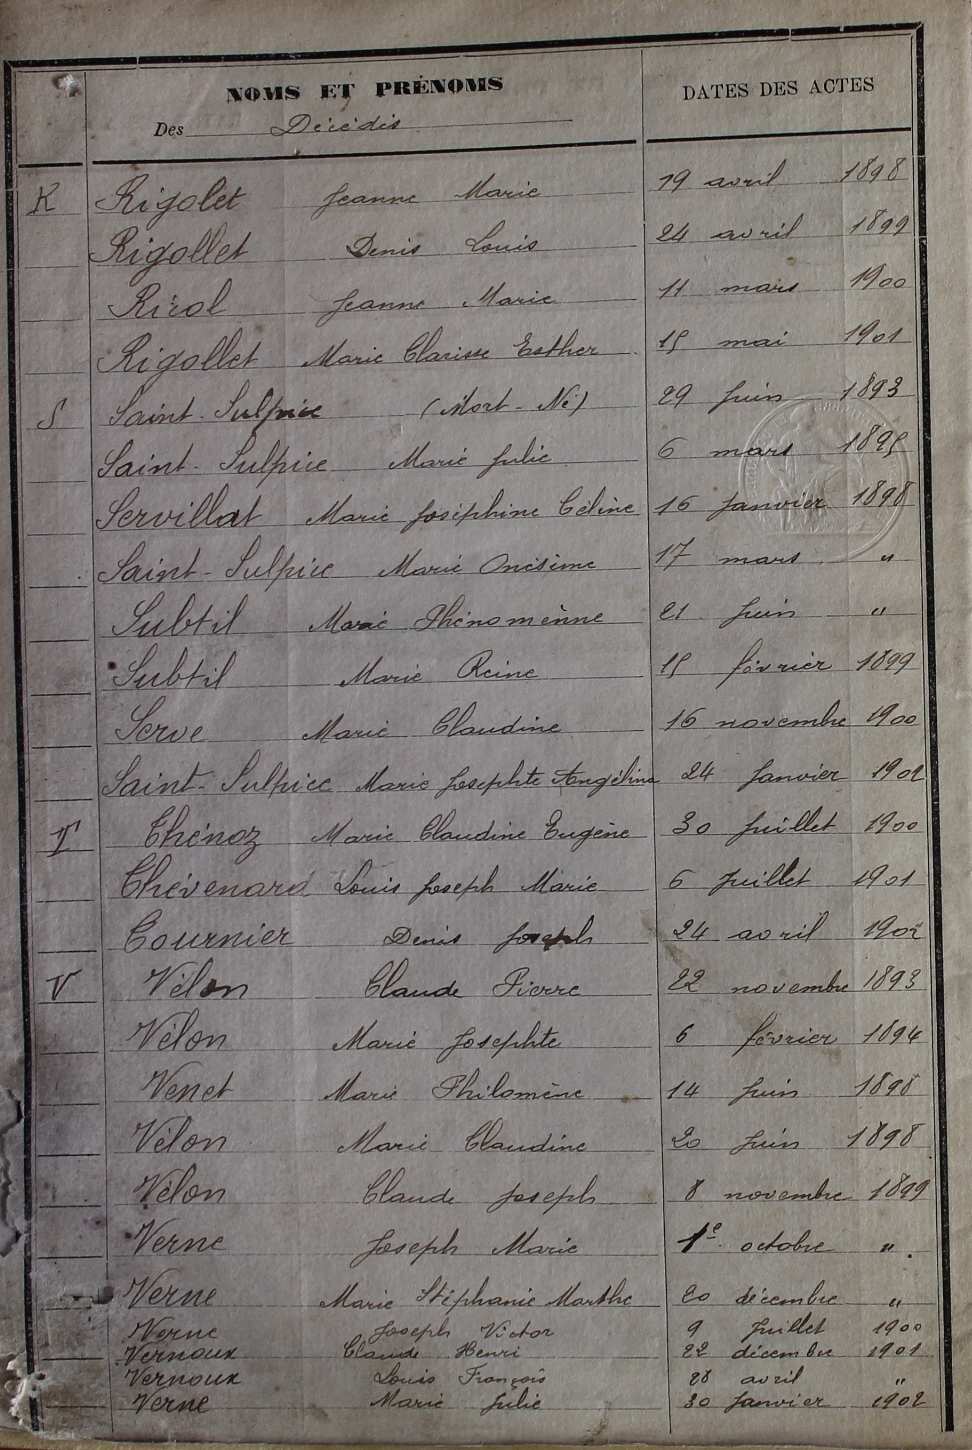 NOMS ET PRÉNOMS DATES DES ACTES
Des Décédés
R Rigolet Jeanne Marie 19 avril 1898
Rigollet Denis Louis 24 avril 1899
Rérol Jeanne Marie 11 mars 1900
Rigollet Marie Clarisse Esther 15 mai 1901
S Saint-Sulpice (Mort-Né) 29 Juin 1893
Saint-Sulpice Marie Julie 6 mars 1895
Servillat Marie Joséphine Céline 16 Janvier 1898
Saint-Sulpice Marie Onésime 17 mars "
Subtil Marie Phénomènne 21 Juin "
Subtil Marie Reine 15 février 1899
Serve Marie Claudine 16 novembre 1900
Saint-Sulpice Marie Josephte Angélina 24 Janvier 1902
T Thénoz Marie Claudine Eugène 30 Juillet 1900
Thévenard Louis Joseph Marie 6 Juillet 1901
Tournier Denis Joseph 24 avril 1902
V Vélon Claude Pierre 22 novembre 1893
Vélon Marie Josephte 6 février 1894
Venet Marie Philomène 14 Juin 1898
Vélon Marie Claudine 20 Juin 1898
Vélon Claude Joseph 8 novembre 1899
Verne Joseph Marie 1e octobre "
Verne Marie Stéphanie Marthe 20 décembre "
Verne Joseph Victor 9 Juillet 1900
Vernoux Claude Henri 22 décembre 1901
Vernoux Louis François 28 avril "
Verne Marie Julie 30 Janvier 1902